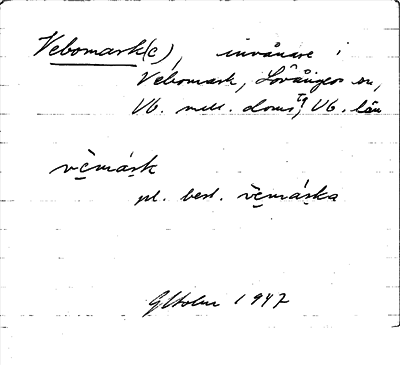 Vebomark(e), invånare i
Vebomark, Lövånger sn,
Vb. mell. doms tg, Vb. län
vèmásk
pl. best. vèmáska
GHolm 1947